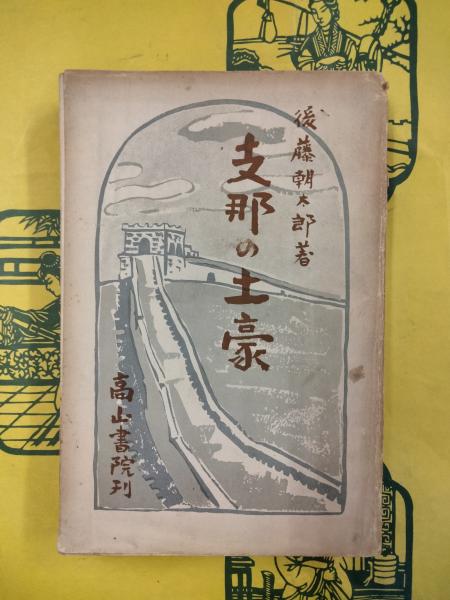 後藤朝太郎著
支那の土豪
高山書院刊